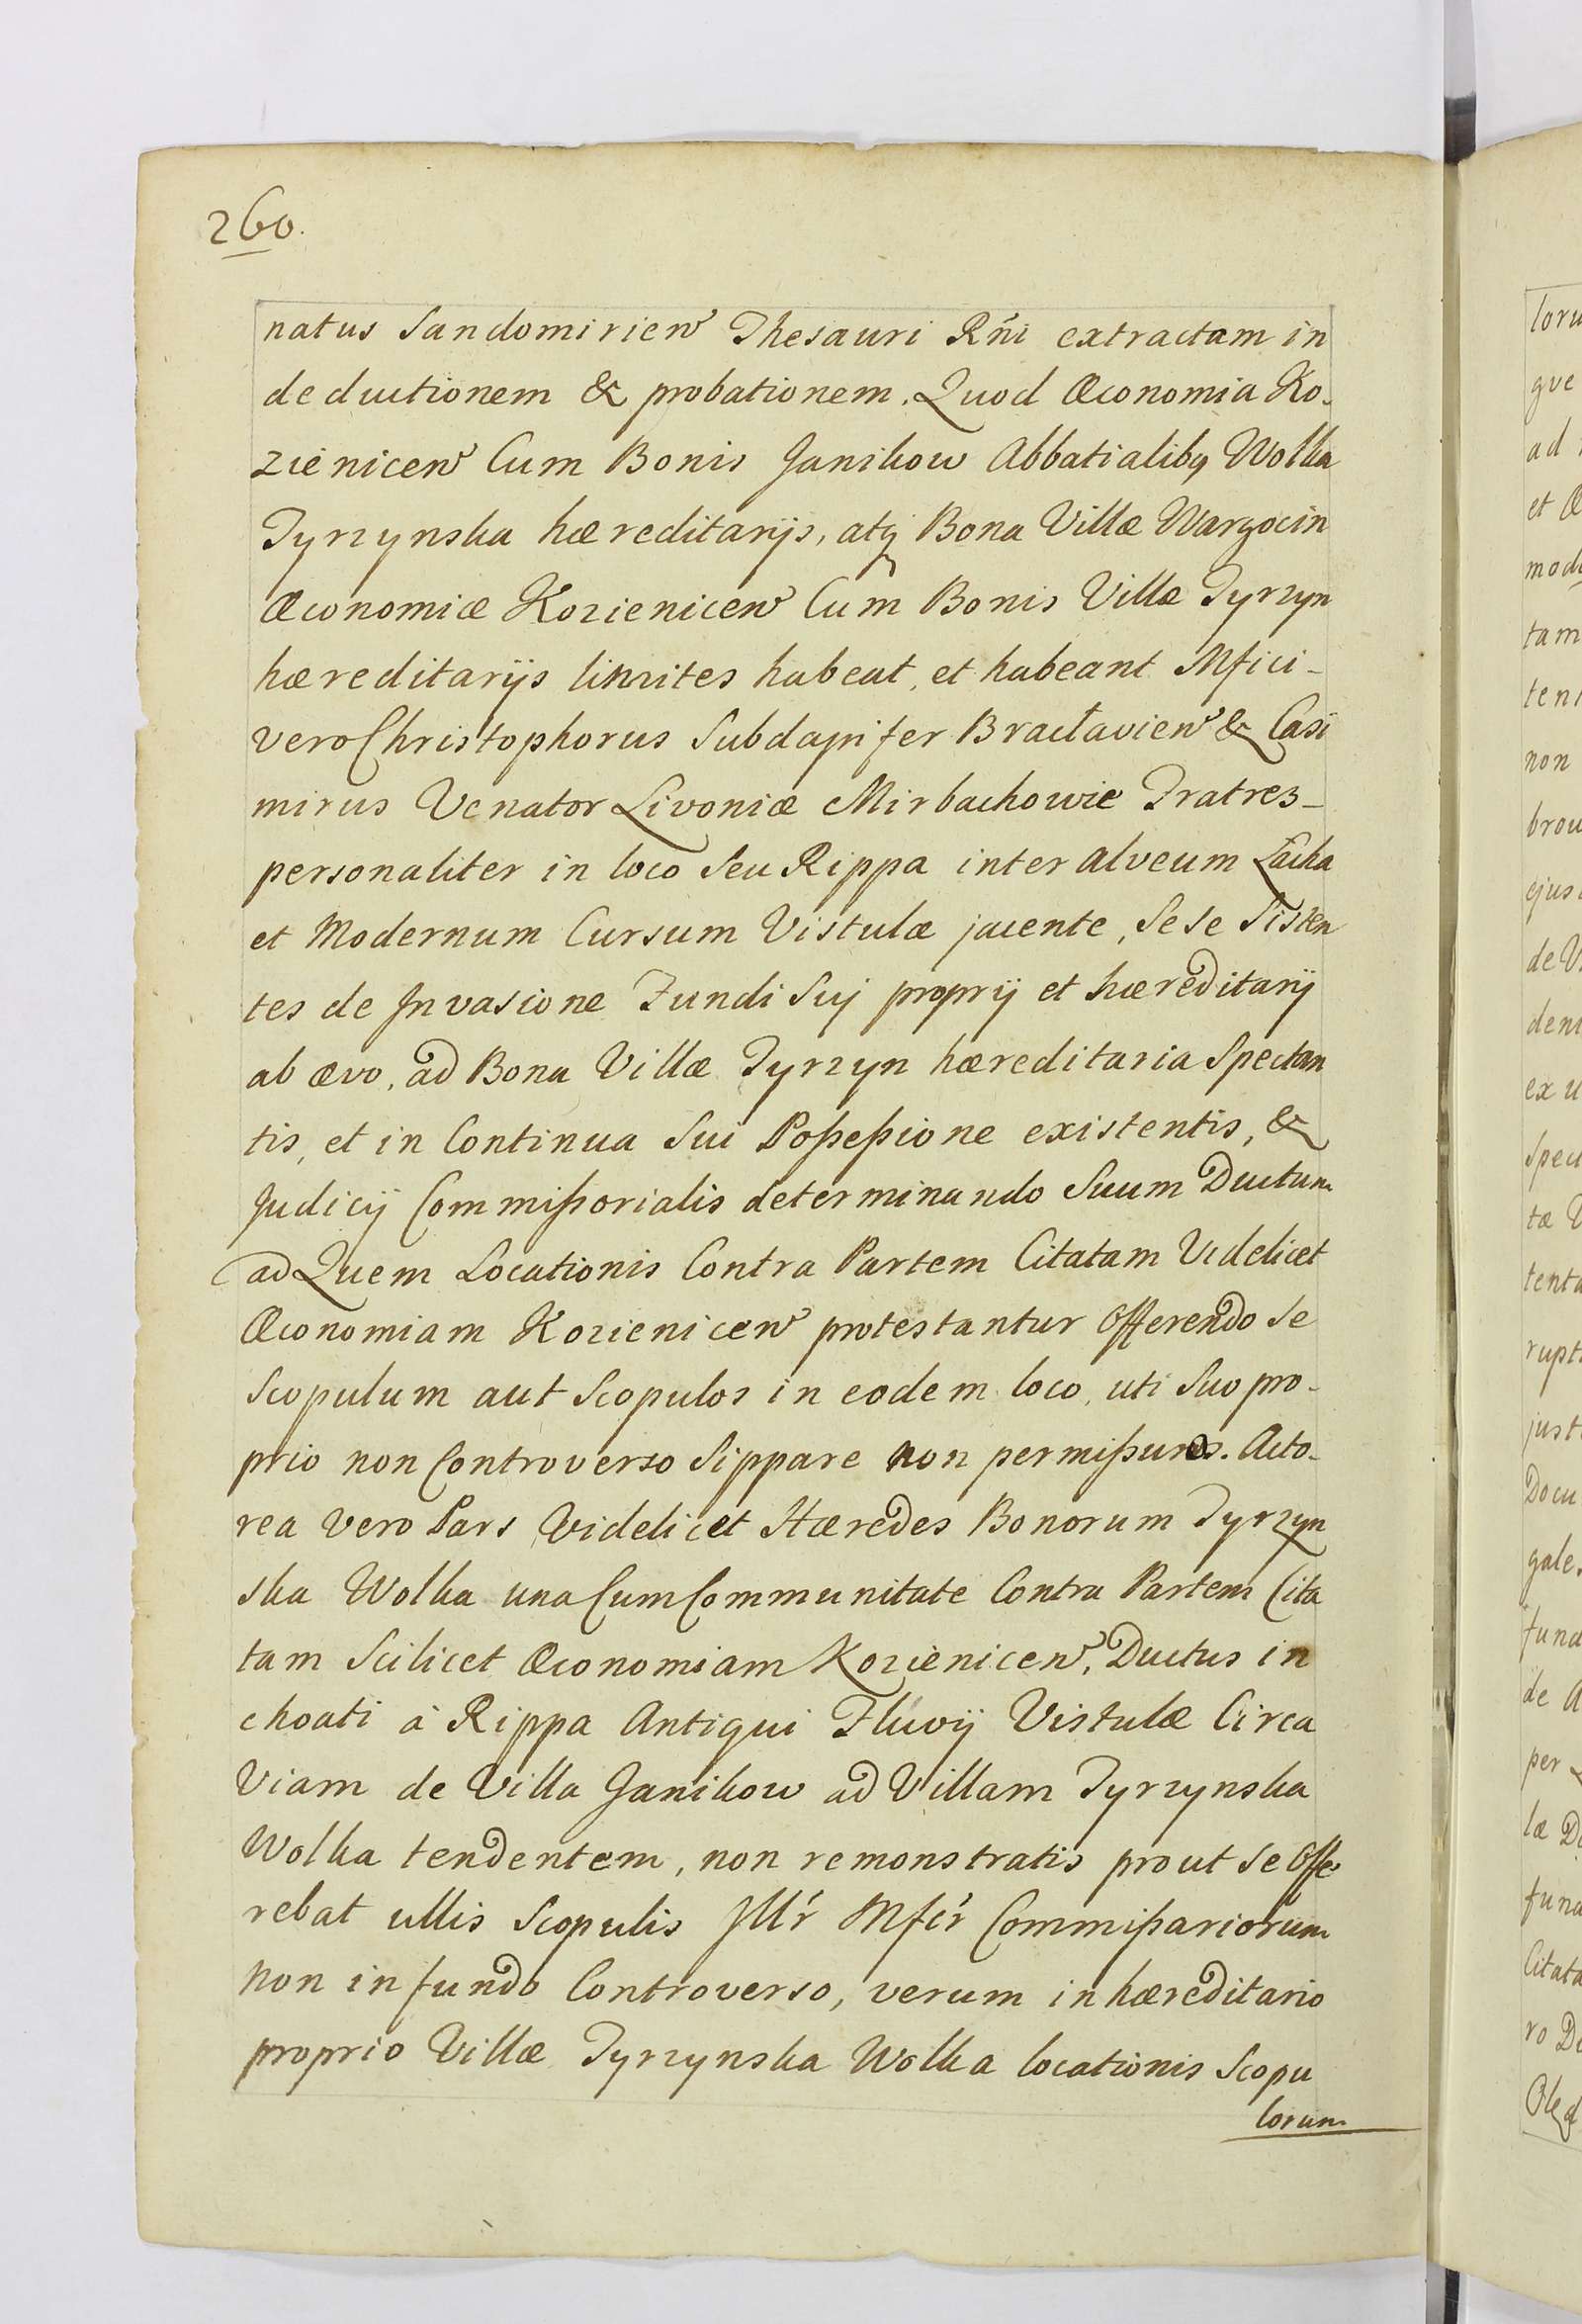 260.
natus Sandomirien Thesauri Rñi extractam in
deductionem & probationem. Quod Œconomia Ko-
zienicen Cum Bonis Janikow Abbatialibq Wolka
Tyrzynska hæreditarijs, atq Bona Villæ Wargocin
Œconomiæ Kozienicen Cum Bonis Villæ Tyrzyn
hæreditarijs limites habeat, et habeant Mfici-
vero Christophorus Subdapifer Bractavien & Casi
mirus Venator Livoniæ Mirbachowie Fratres-
personaliter in loco seu Rippa inter alveum Łacha
et Modernum Cursum Vistulæ jacente, Sese Sisten
tes de Invasione Fundi Suj proprij et hæreditarij
ab ævo, ad Bona Villæ Tyrzyn hæreditaria Spectan
tis, et in Continua Sui Poßeßione existentis, &
Judicij Commißorialis determinando Suum Ductum
ad Quem Locationis Contra Partem Citatam Videlicet
Œconomiam Kozienicen protestantur Offerendo se
Scopulum aut Scopulos in eodem loco, uti Suo pro-
prio non Controverso Sippare non permißuros. Acto-
rea vero Pars Videlicet Hæredes Bonorum Tyrzyn
ska Wolka una Cum Communitate Contra Partem Cita
tam Scilicet Œconomiam Kozienicen, Ductus in
choati à Rippa Antiqui Fluvij Vistulæ Circa
Viam de Villa Janikow ad Villam Tyrzynska
Wolka tendentem, non remonstratis prout se Offe
rebat ullis Scopulis Jllr Mfcr Commißariorum
non in fundo Controverso, verum in hæreditario
proprio Villæ Tyrzynska Wolka locationis Scopu
lorum